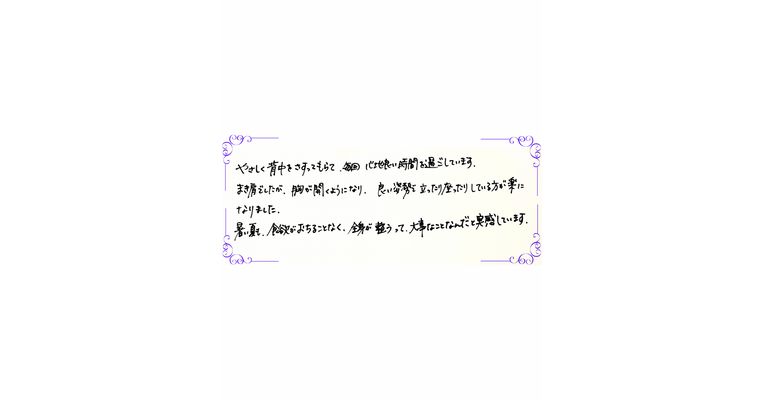 やさしく背中をさすってもらって、毎回心地良い時間を過ごしています。
まき肩でしたが、胸が開くようになり、良い姿勢で立ったり座ったりしている方が楽に
なりました。
暑い夏も、食欲がおちることなく、全身が整うって、大事なことなんだと実感しています。